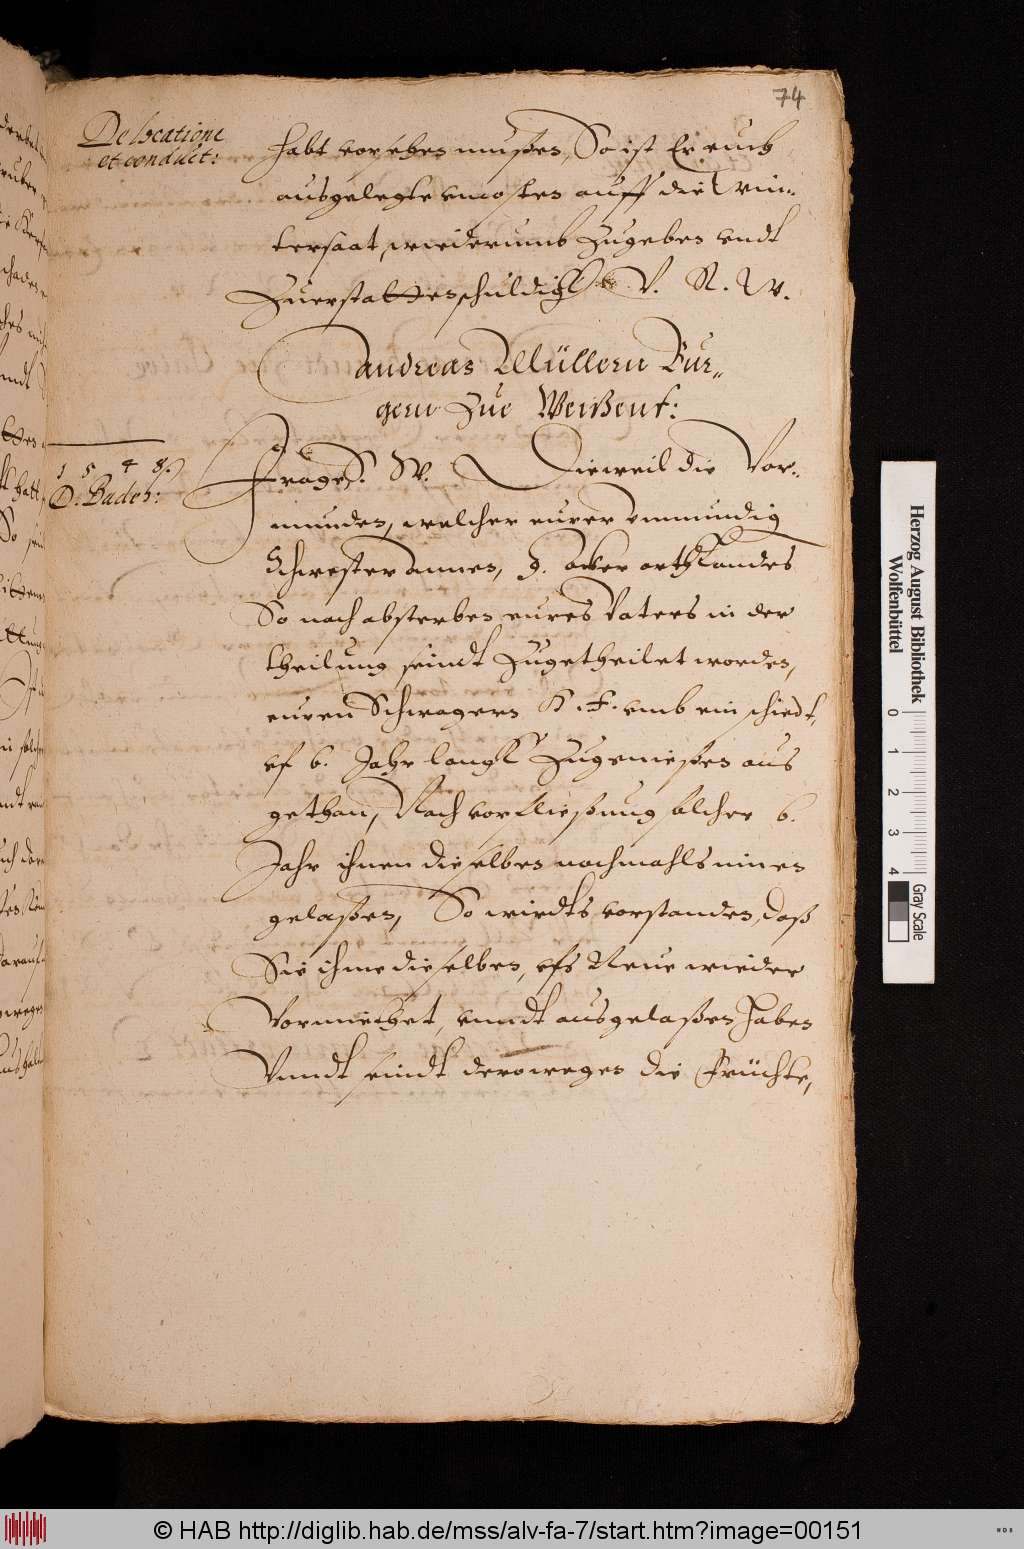 74
De locatione
et conduct:
habt vor ehen mußen, So ist Er euch
ausgelegte vnkosten auff die Win-
tersaat, wiederumb Zugeben vndt
Zuerstatten schuldigk V. R. W.
Andreas Müllern Bur-
gern Zue Weißenf:
1 5 4 8.
D. Baden:
Frage. W. Dieweil die Vor-
munden, welcher eurer vnmundig
Schwester Annen, 9. acker arthlandes
So nach absterben eures Vaters in der
theilung seindt Zugetheilet worden,
euren Schwagern K. F. vmb ein schiedt,
vf 6. Jahr langk Zugenießen aus
gethan, Nach vorfließung solcher 6.
Jahr ihnen dieselben nachmahls innen
gelaßen, So wirdts vorstanden, daß
Sie ihme dieselben, vfs Neue wieder
Vormiethet, vnndt ausgelaßen haben
Vnndt seindt derowegen die Früchte,
Herzog August Bibliothek
Wolfenbüttel
0 1 2 3 4
Gray Scale
© HAB http://diglib.hab.de/mss/alv-fa-7/start.htm?image=00151